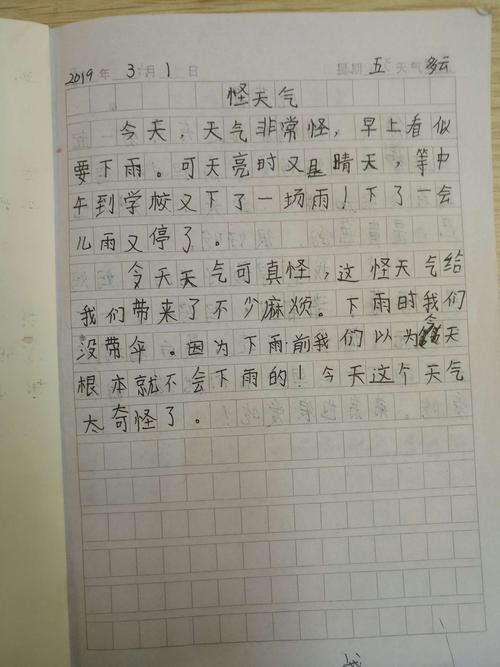 2019年 3月1日 星期五 天气多云
怪天气
今天，天气非常怪，早上看似
要下雨。可天亮时又是晴天，等中
午到学校又下了一场雨！下了一会
儿雨又停了。
今天天气可真怪，这怪天气给
我们带来了不少麻烦。下雨时我们
没带伞。因为下雨前我们以为今天
根本就不会下雨的！今天这个天气
太奇怪了。